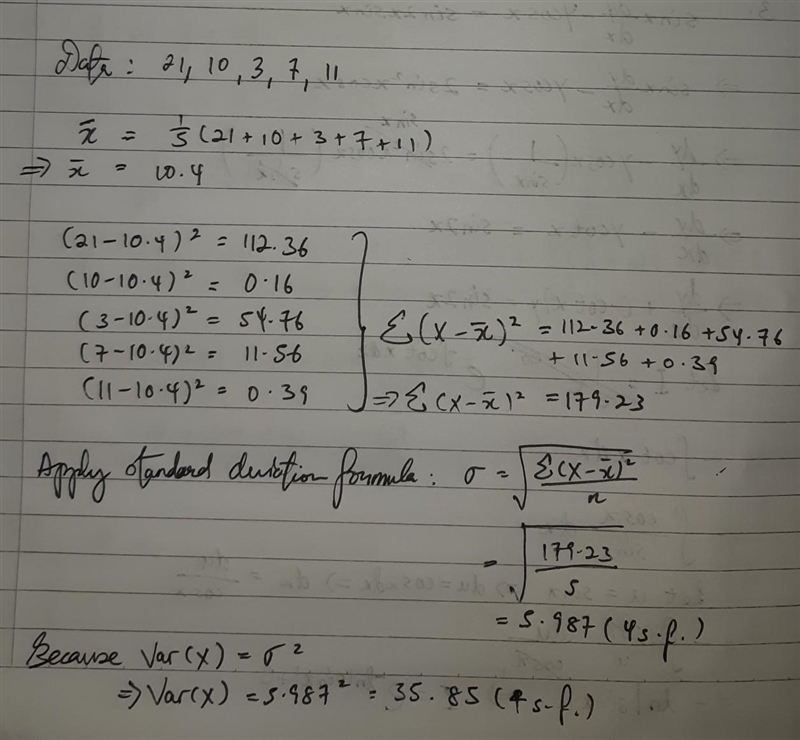 Data: 21, 10, 3, 7, 11
x̄ = 1/5 (21+10+3+7+11)
⇒ x̄ = 10.4
(21-10.4)² = 112.36
(10-10.4)² = 0.16
(3-10.4)² = 54.76
(7-10.4)² = 11.56
(11-10.4)² = 0.39
Σ(X-x̄)² = 112.36+0.16+54.76
+11.56+0.39
⇒ Σ(X-x̄)² = 179.23
Apply standard deviation formula: σ = √(Σ(X-x̄)²/n)
= √(179.23/5)
= 5.987 (4 s.f.)
Because Var(X) = σ²
⇒ Var(X) = 5.987² = 35.85 (4 s.f.)